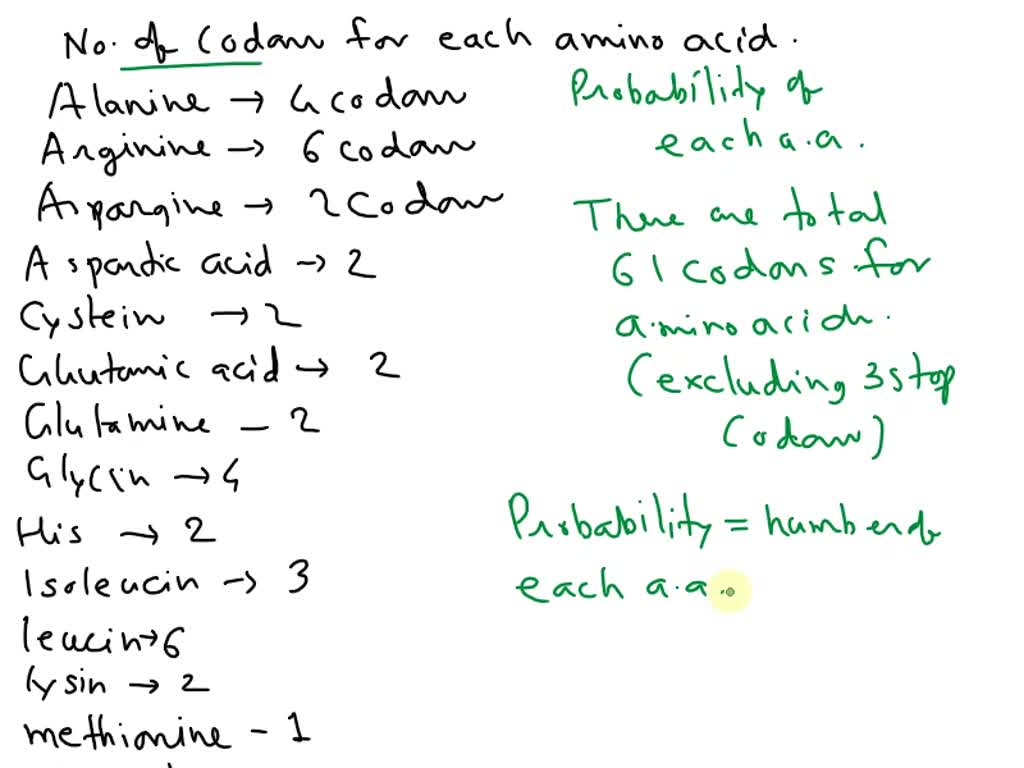 No. of Codons for each amino acid.
Alanine → 4 codons
Arginine → 6 codons
Aspargine → 2 Codons
Aspartic acid → 2
Cystein → 2
Glutamic acid → 2
Glutamine - 2
Glycin → 4
His → 2
Isoleucin → 3
leucin → 6
lysin → 2
methionine - 1
Probability of
each a.a.
There are total
61 codons for
amino acids.
(excluding 3 stop
Codons)
Probability = number of
each a.a.